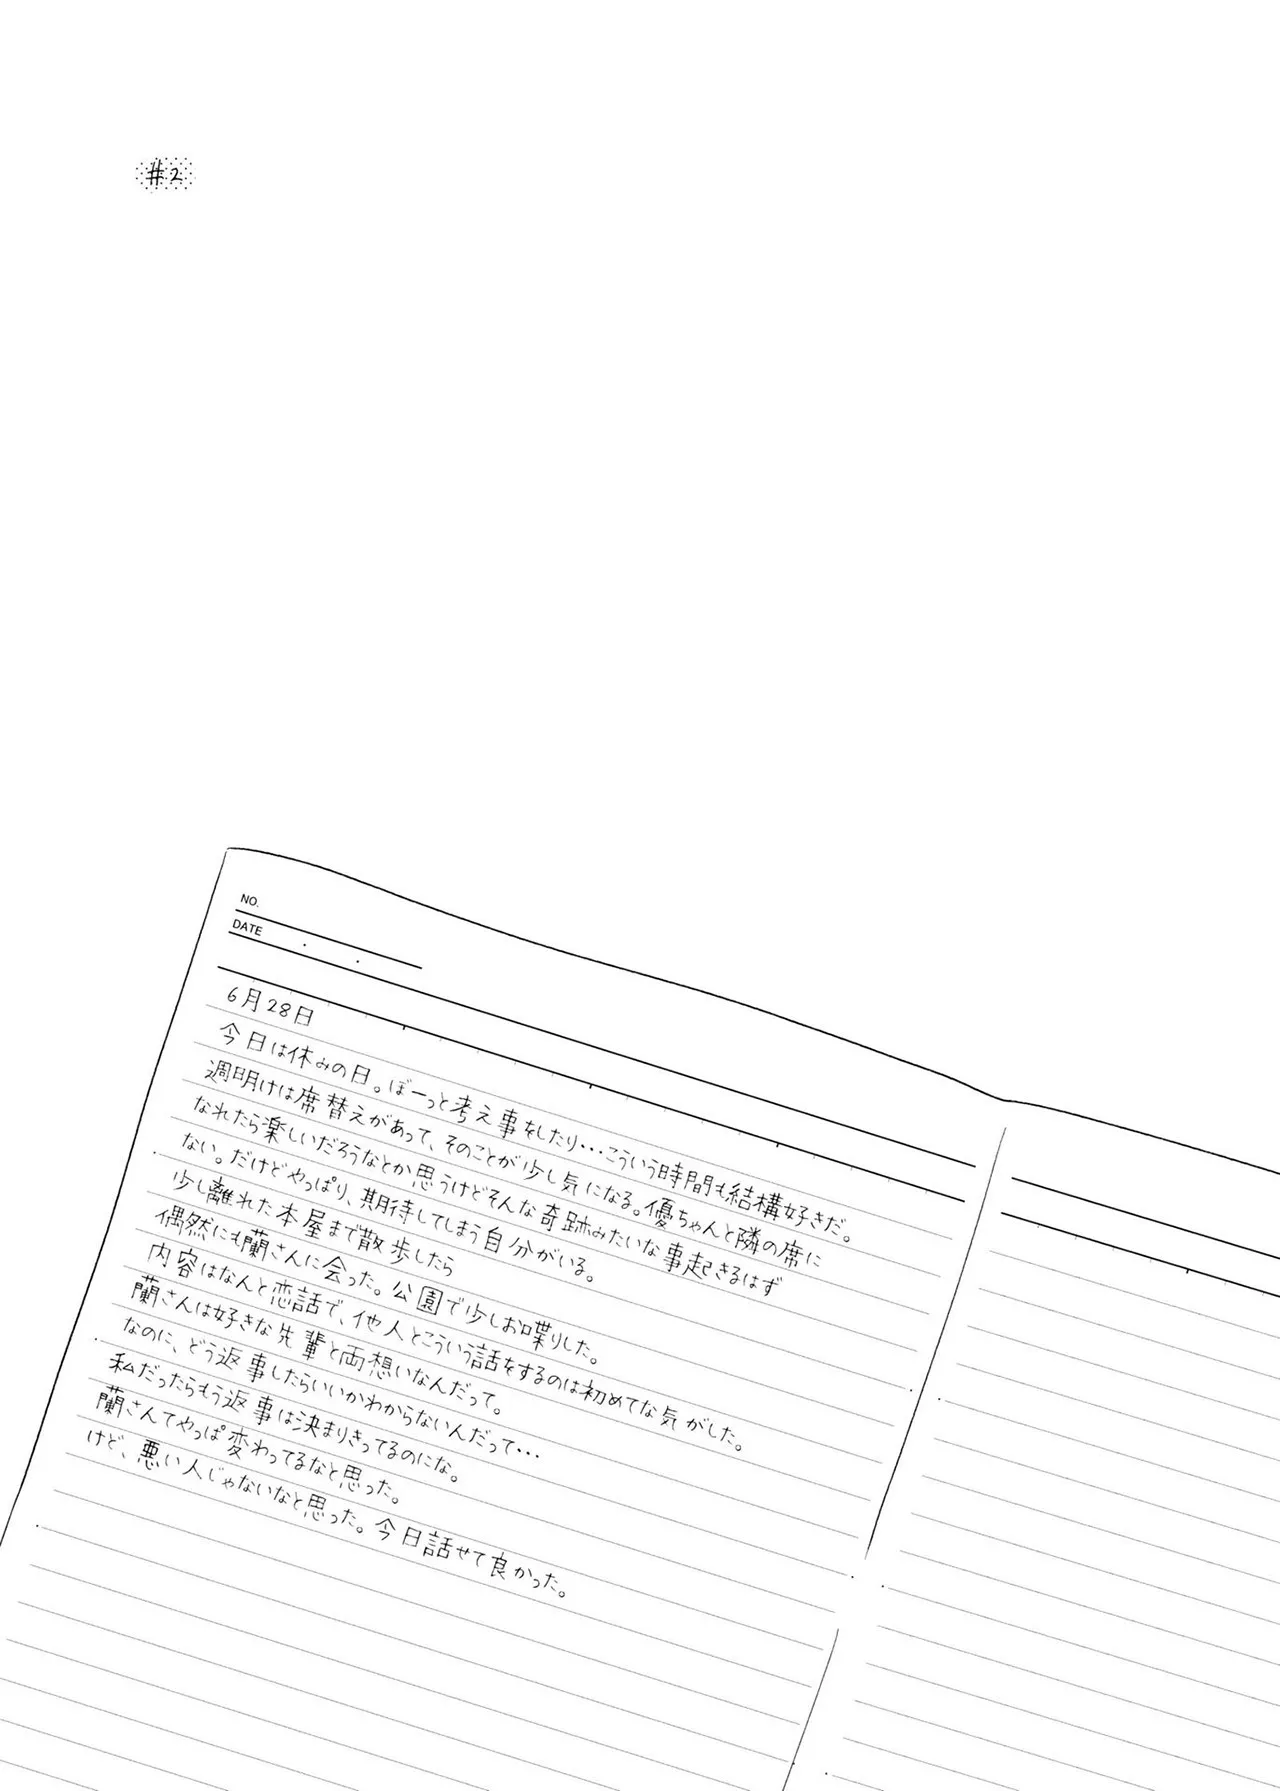 #2
NO.
DATE
6月28日
今日は休みの日。ぼーっと考え事をしたり・・・こういう時間も結構好きだ。
週明けは席替えがあって、そのことが少し気になる。優ちゃんと隣の席に
なれたら楽しいだろうなとか思うけどそんな奇跡みたいな事起きるはず
ない。だけどやっぱり、期待してしまう自分がいる。
少し離れた本屋まで散歩したら
偶然にも蘭さんに会った。公園で少しお喋りした。
内容はなんと恋話で、他人とこういう話をするのは初めてな気がした。
蘭さんは好きな先輩と両想いなんだって。
なのに、どう返事したらいいかわからないんだって・・・
私だったらもう返事は決まりきってるのにな。
蘭さんてやっぱ変わってるなと思った。
けど、悪い人じゃないなと思った。今日話せて良かった。